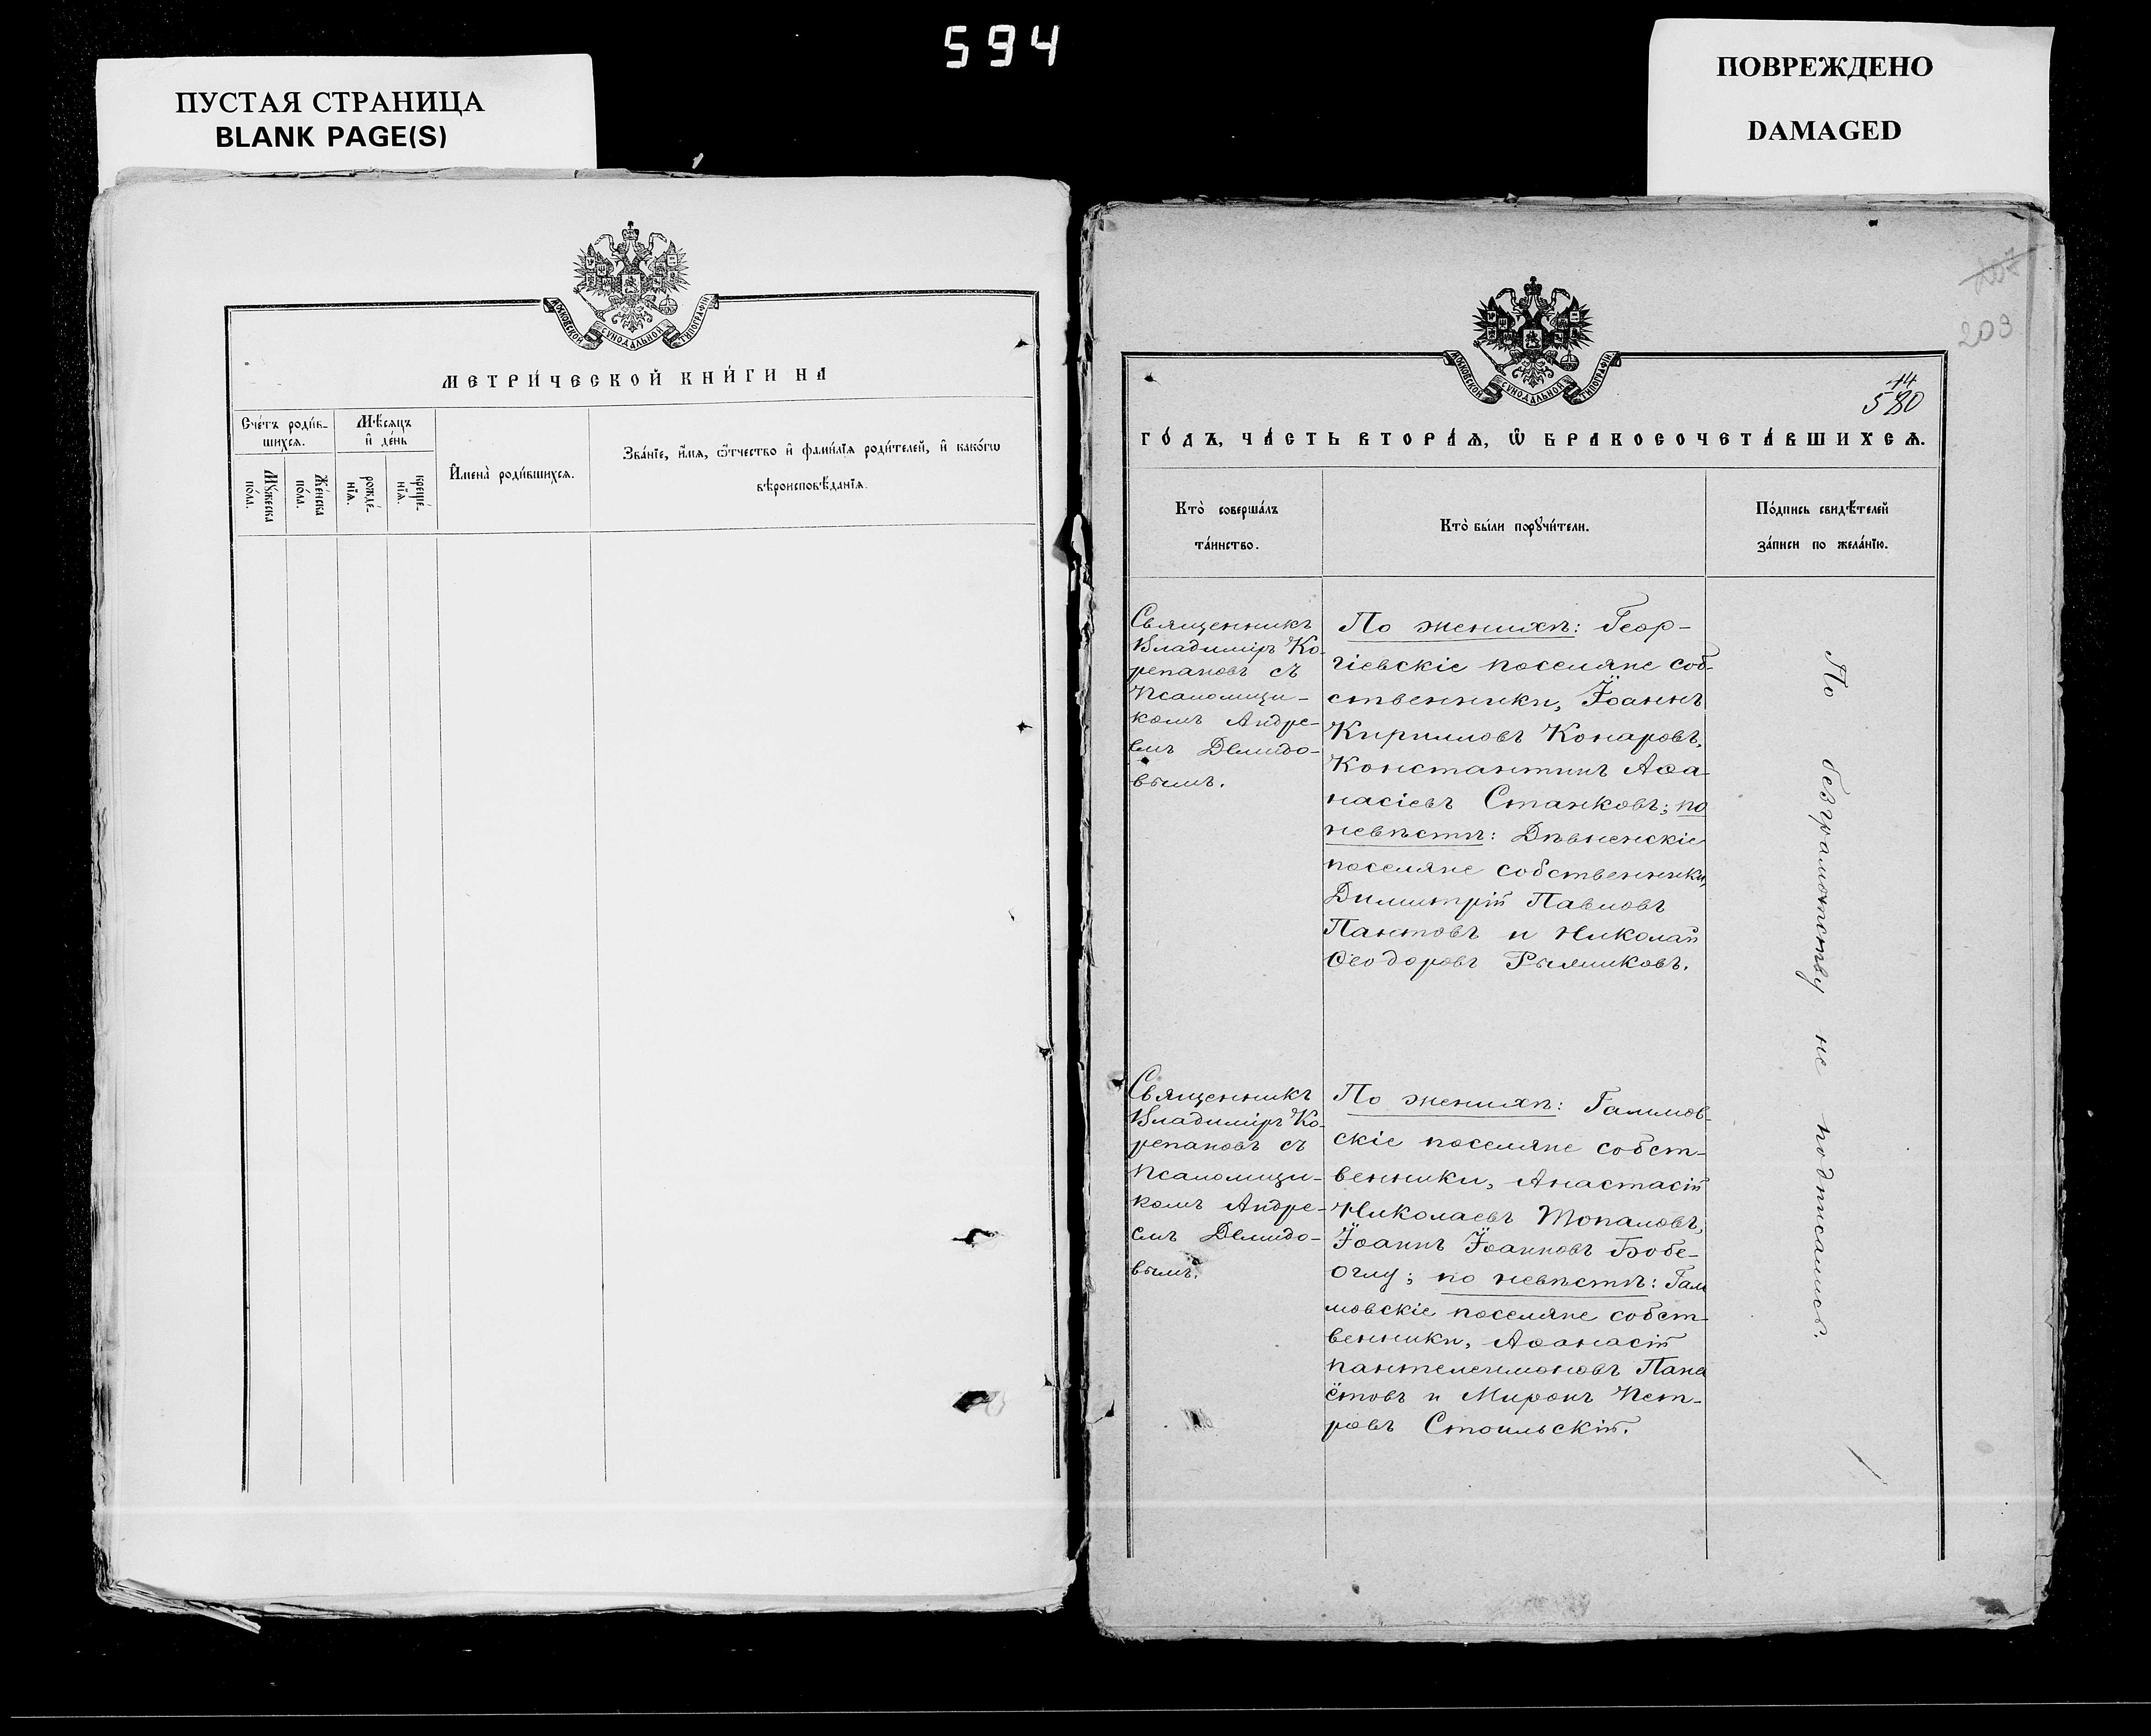 594
ПУСТАЯ СТРАНИЦА
BLANK PAGE(S)
ПОВРЕЖДЕНО
DAMAGED
МОСКОВСКОЙ СѴНОДАЛЬНОЙ ТИПОГРАФІИ
МЕТРИ́ЧЕСКОЙ КНИ́ГИ НА
Сче́тъ роди́в-
шихсѧ.
Мѣ́сѧцъ
и҆ де́нь
И҆мена̀ роди́вшихсѧ.
Зва́нїе, и҆́мѧ, ѻ҆́тчество и҆ фами́лїѧ роди́телей, и҆ како́гѡ
вѣроисповѣ́данїѧ.
Мꙋ́жеска
по́ла.
Же́нска
по́ла.
рожде́-
нїѧ.
креще́-
нїѧ.
203
580
МОСКОВСКОЙ СѴНОДАЛЬНОЙ ТИПОГРАФІИ
ГО́ДЪ, ЧА́СТЬ ВТОРА́Ѧ, Ѡ҆ БРАКОСОЧЕТА́ВШИХСѦ.
Кто̀ соверша́лъ
та́инство.
Кто̀ бы́ли порꙋчи́тели.
По́дпись свидѣ́телей
за́писи по жела́нїю.
Священникъ
Владиміръ Ко-
репановъ съ
псаломщи-
комъ Андре-
емъ Демидо-
вымъ.
По женихѣ: Геор-
гіевскіе поселяне соб-
ственники, Іоаннъ
Кирилловъ Конаровъ,
Константинъ Аѳа-
насіевъ Станковъ; по
невѣстѣ: Дѣвненскіе
поселяне собственники,
Димитрій Павловъ
Пантовъ и Николай
Ѳеодоровъ
По безграмотству не подписались.
Священникъ
Владиміръ Ко-
репановъ съ
псаломщи-
комъ Андре-
емъ Демидо-
вымъ.
По женихѣ: Галимов-
скіе поселяне собст-
венники, Анастасій
Николаевъ Топаловъ,
Іоаннъ Іоанновъ Бобе-
оглу; по невѣстѣ: Гали
мовскіе поселяне собст-
венники, Аѳанасій
Пантелеимоновъ Пана
ётовъ и Миронъ Пет-
ровъ Стоильскій.